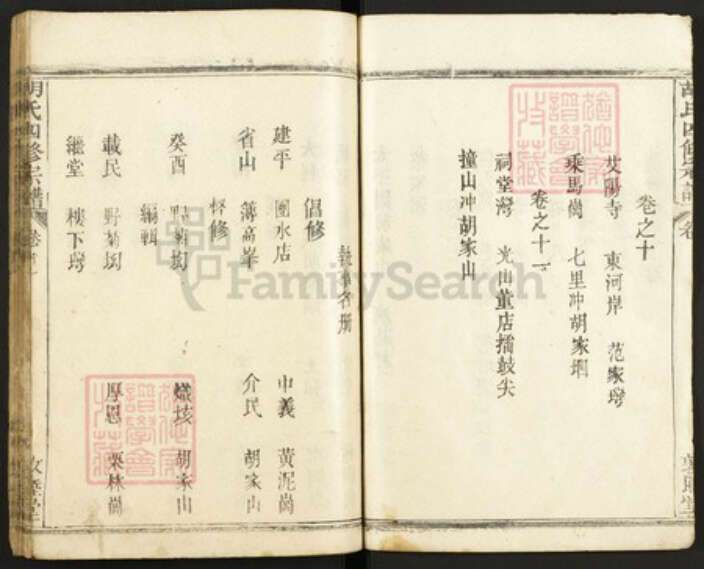 卷之十
艾陽寺 東河岸 范家塆
乘馬崗 七里冲胡家垇
卷之十一
祠堂灣 光山董店擂鼓尖
撞山冲胡家山
執事名册
倡修
建平 團水店 中義 黃泥崗
省山 簿高峯 介民 胡家山
督修
癸酉 野菊㘭 熾垓 胡家山
編輯
載民 野菊㘭 厚恩 栗林崗
繼堂 樓下塆
胡氏四修宗譜 卷首
敦睦堂
FamilySearch